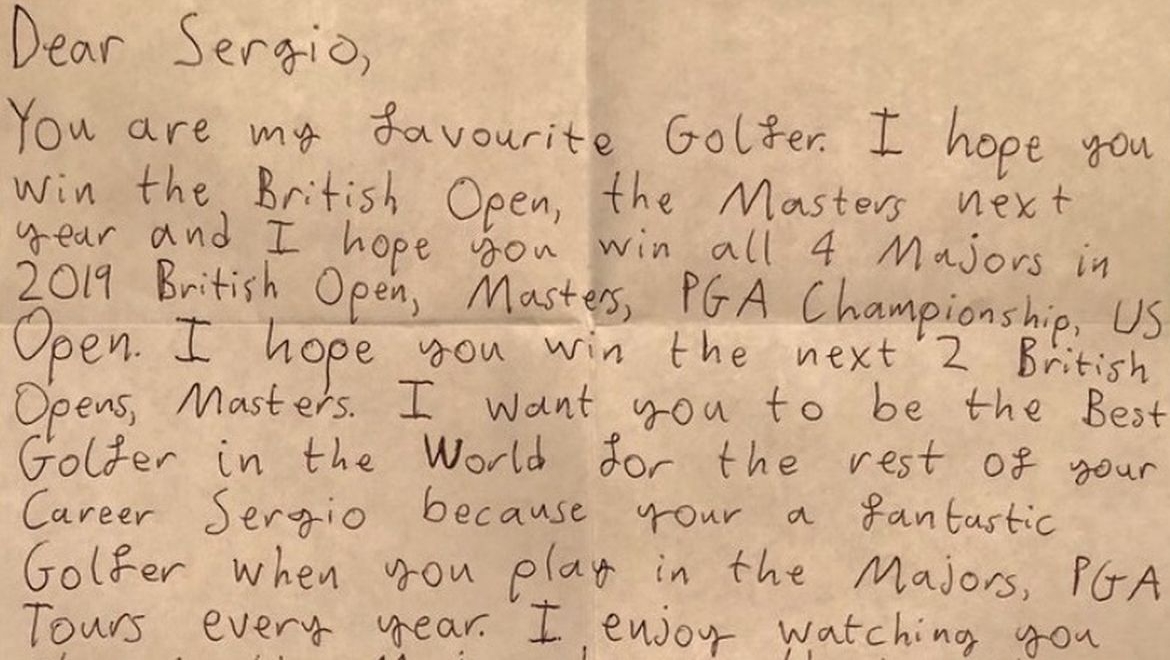 Dear Sergio,
You are my favourite Golfer. I hope you
win the British Open, the Masters next
year and I hope you win all 4 Majors in
2019 British Open, Masters, PGA Championship, US
Open. I hope you win the next 2 British
Opens, Masters. I want you to be the Best
Golfer in the World for the rest of your
Career Sergio because your a fantastic
Golfer when you play in the Majors, PGA
Tours every year. I enjoy watching you